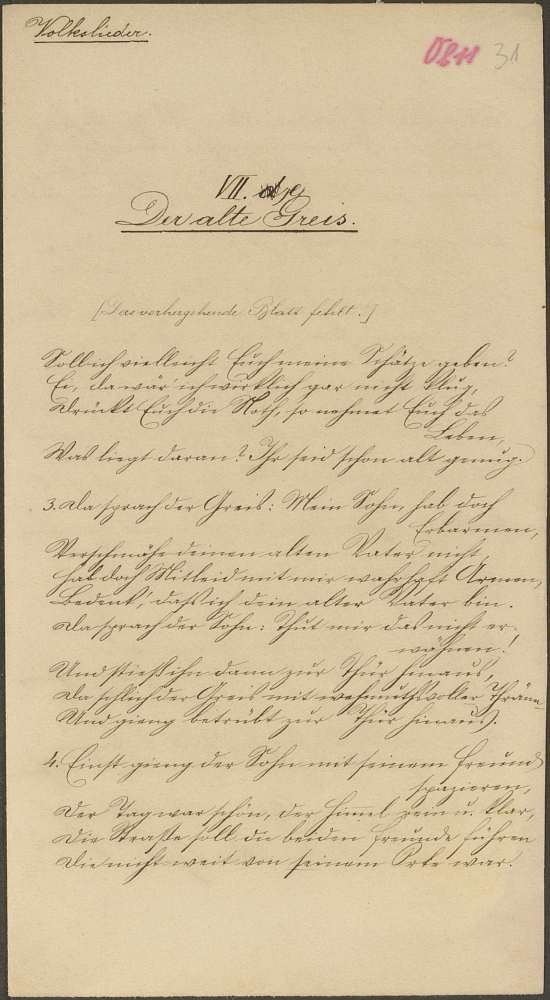 Volkslieder.
31
VII.
Der alte Greis.
[Das vorhergehende Blatt fehlt.]
Soll ich vielleicht Euch meine Schätze geben?
Ei, da wär' ich wirklich gar nicht klug,
Drückt Euch die Noth, so nehmet Euch das
Leben,
Was liegt daran? Ihr seid schon alt genug.
3. Da sprach der Greis: Mein Sohn, hab doch
Erbarmen,
Verschmähe deinen alten Vater nicht,
hab doch Mitleid mit mir wahrhaft Armen,
Bedenk', daß ich dein alter Vater bin.
Da sprach der Sohn: Thut mir das nicht er-
wähnen!
Und stieß ihn dann zur Thür hinaus,
Da schlich der Greis mit wehmuthsvoller Thräne
Und gieng betrübt zur Thür hinaus.
4. Einst gieng der Sohn mit seinem Freund
spazieren,
Der Tag war schön, der Himel rein u. klar,
Die Straße soll die beiden Freunde führen
Die nicht weit von seinem Orte war.